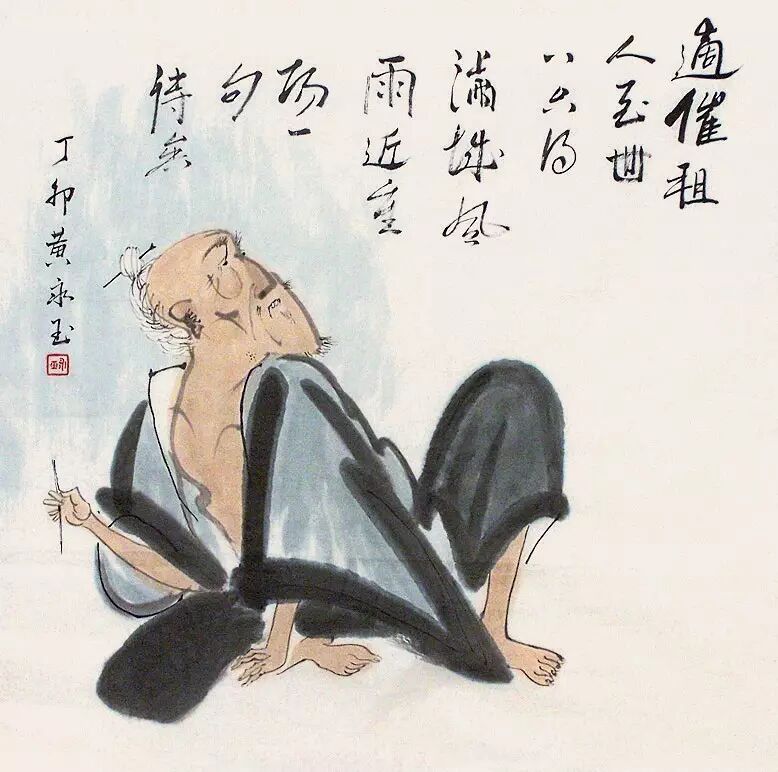 適催租
人至
得
滿城風
雨近重
陽一
句
丁卯黄永玉